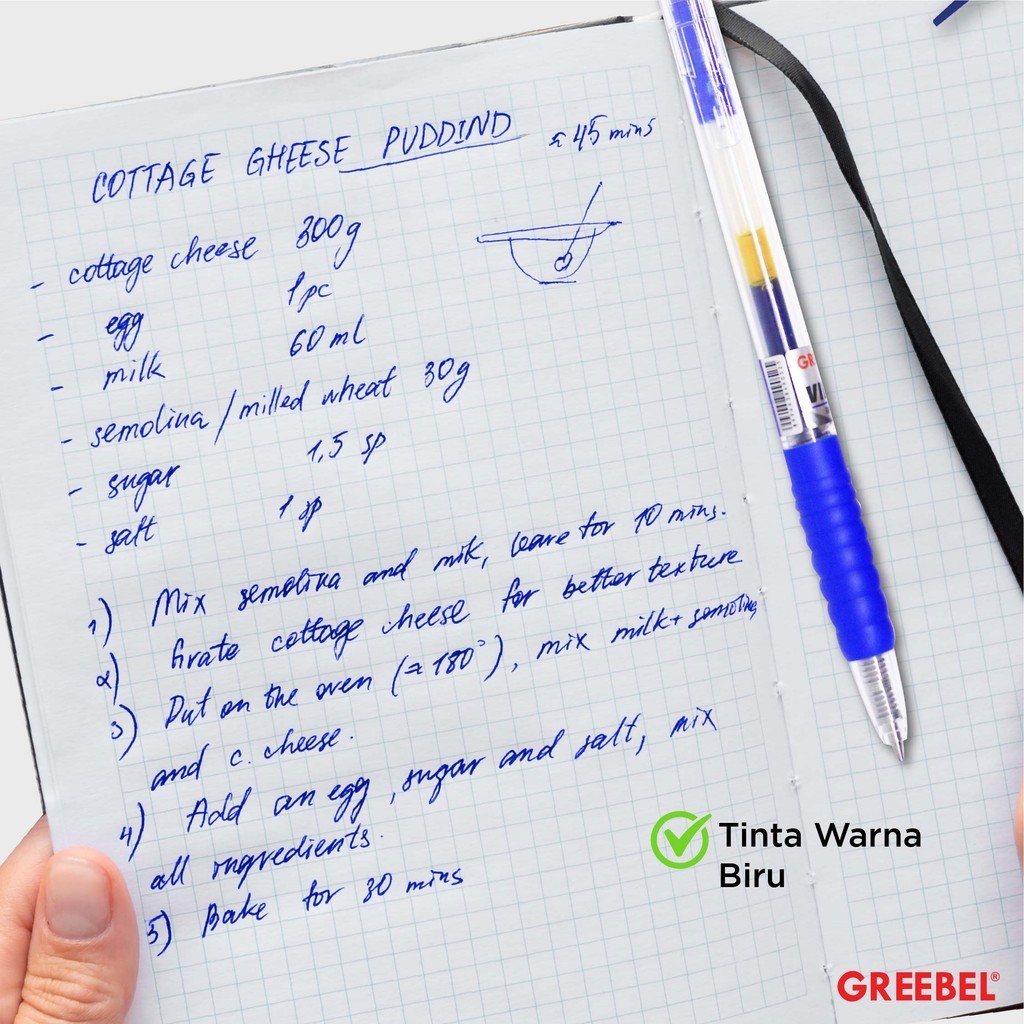 COTTAGE GHEESE PUDDIND ≈ 45 mins
- cottage cheese 300g
- egg 1 pc
- milk 60 ml
- semolina / milled wheat 30g
- sugar 1,5 sp
- salt 1 sp
1) Mix semolina and milk, leave for 10 mins.
2) Grate cottage cheese for better texture
3) Put on the oven (≈ 180°), mix milk + semolina
and c. cheese.
4) Add an egg, sugar and salt, mix
all ingredients.
5) Bake for 30 mins
GR
VI
Tinta Warna
Biru
GREEBEL®